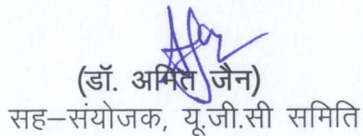 (डॉ. अमित जैन)
सह–संयोजक, यू.जी.सी समिति